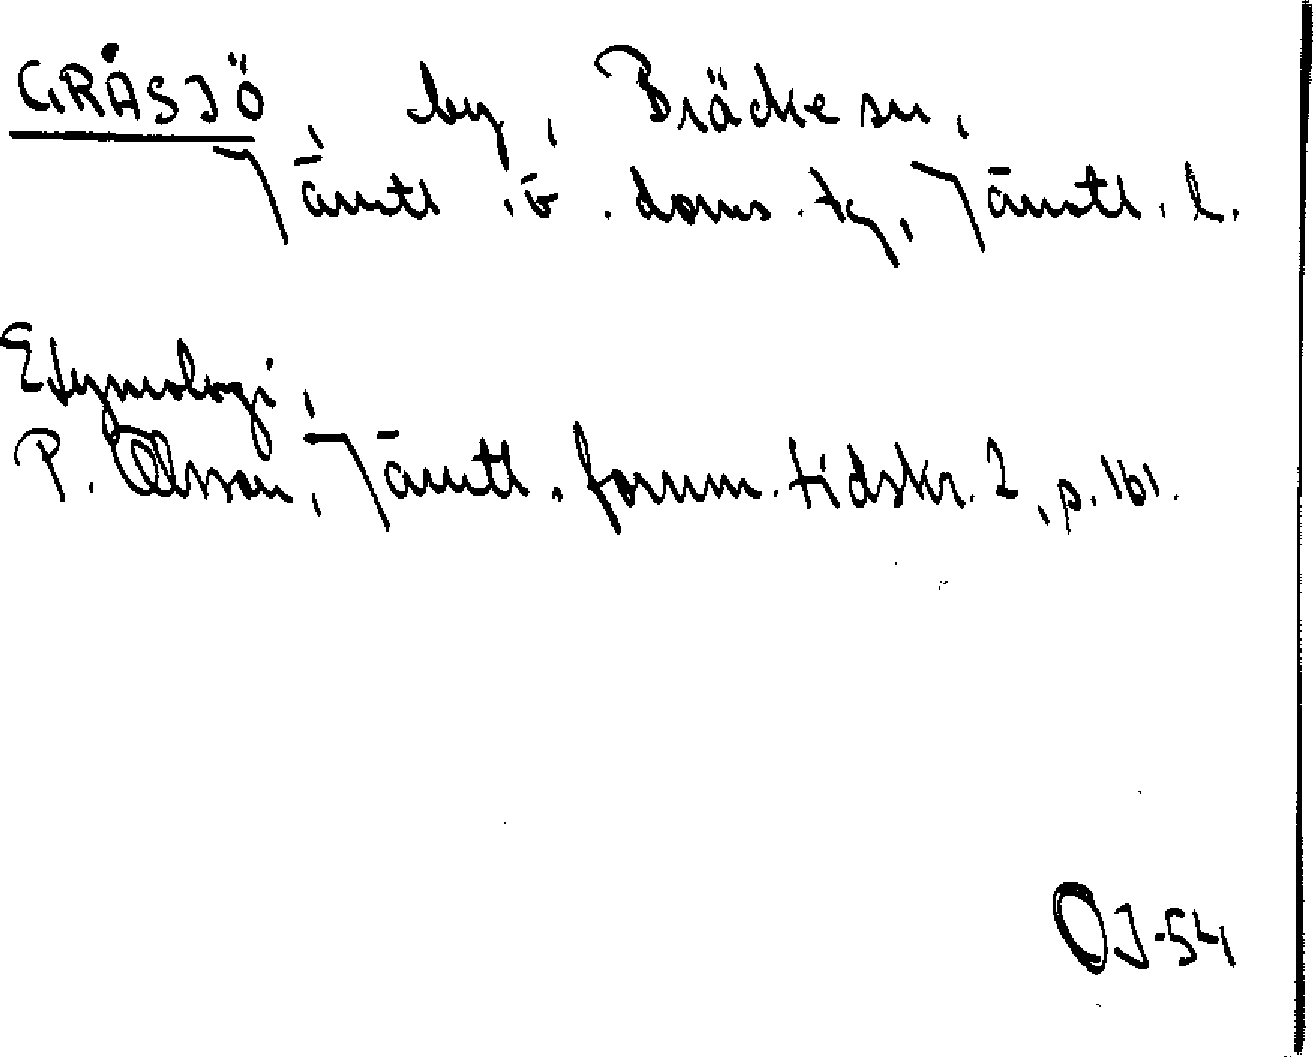 GRÅSJÖ, by, Bräcke sn,
Jämtl. ö. doms. tg, Jämtl. l.
Etymologi,
P. Olsson, Jämtl. fornm. tidskr. 2, p. 161.
OJ-54